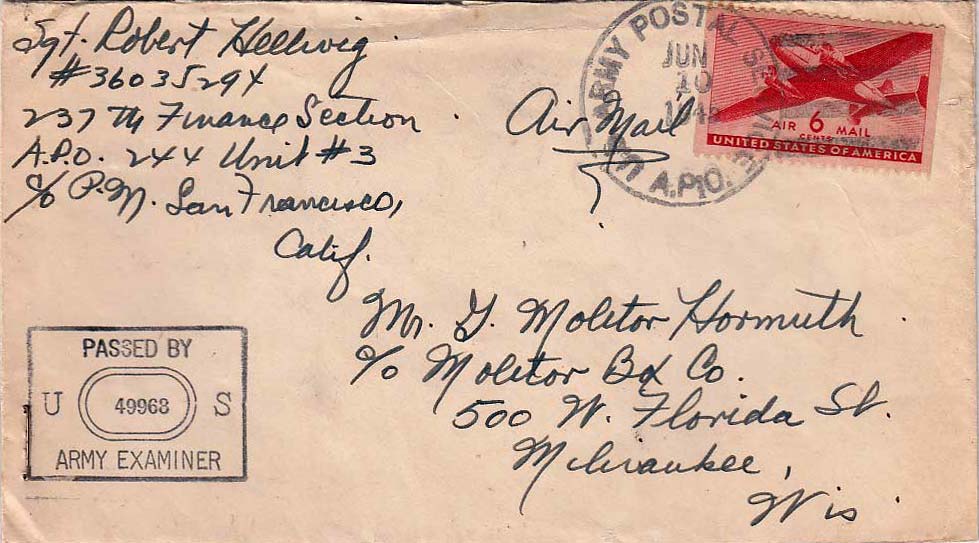 Sgt. Robert Hellwig.
#36035294
237th Finance Section
A.P.O. 244 Unit #3
c/o P.M. San Francisco,
Calif.
Air Mail
U.S. ARMY POSTAL SERVICE
JUN
10
A.P.O.
AIR 6 MAIL
CENTS
UNITED STATES OF AMERICA
Mr. G. Molitor Hormuth.
c/o Molitor Box Co.
500 W. Florida St.
Milwaukee,
Wis.
PASSED BY
U 49968 S
ARMY EXAMINER